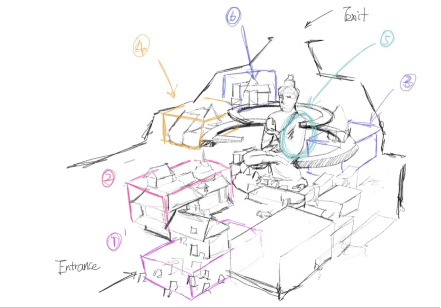 exit
6
5
4
3
2
1
Entrance